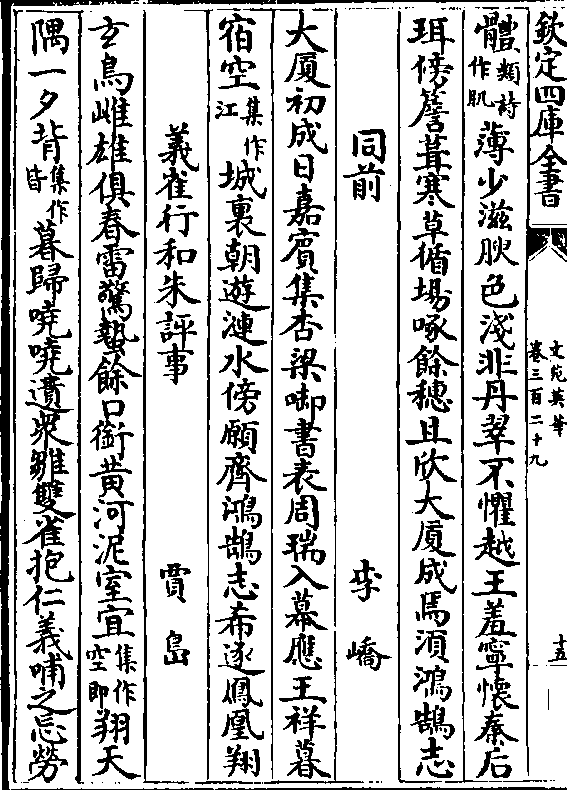 欽定四庫全書
文苑英華
卷三百二十九
十五
體類詩作肌薄少滋腴色淺非丹翠不懼越王羞寧懷秦后
珥傍簷葺寒草循場啄餘穗且欣大厦成焉須鴻鵠志
同前 李嶠
大厦初成日嘉賓集杏梁啣書表周瑞入幕應王祥暮
宿空集作江城裏朝遊漣水傍願齊鴻鵠志希逐鳳凰翔
義雀行和朱評事 賈島
玄鳥雌雄俱春雷驚蟄餘口銜黄河泥室宜集作空即翔天
隅一夕背集作皆暮歸嘵嘵遺衆雛雙雀抱仁義哺之忘勞